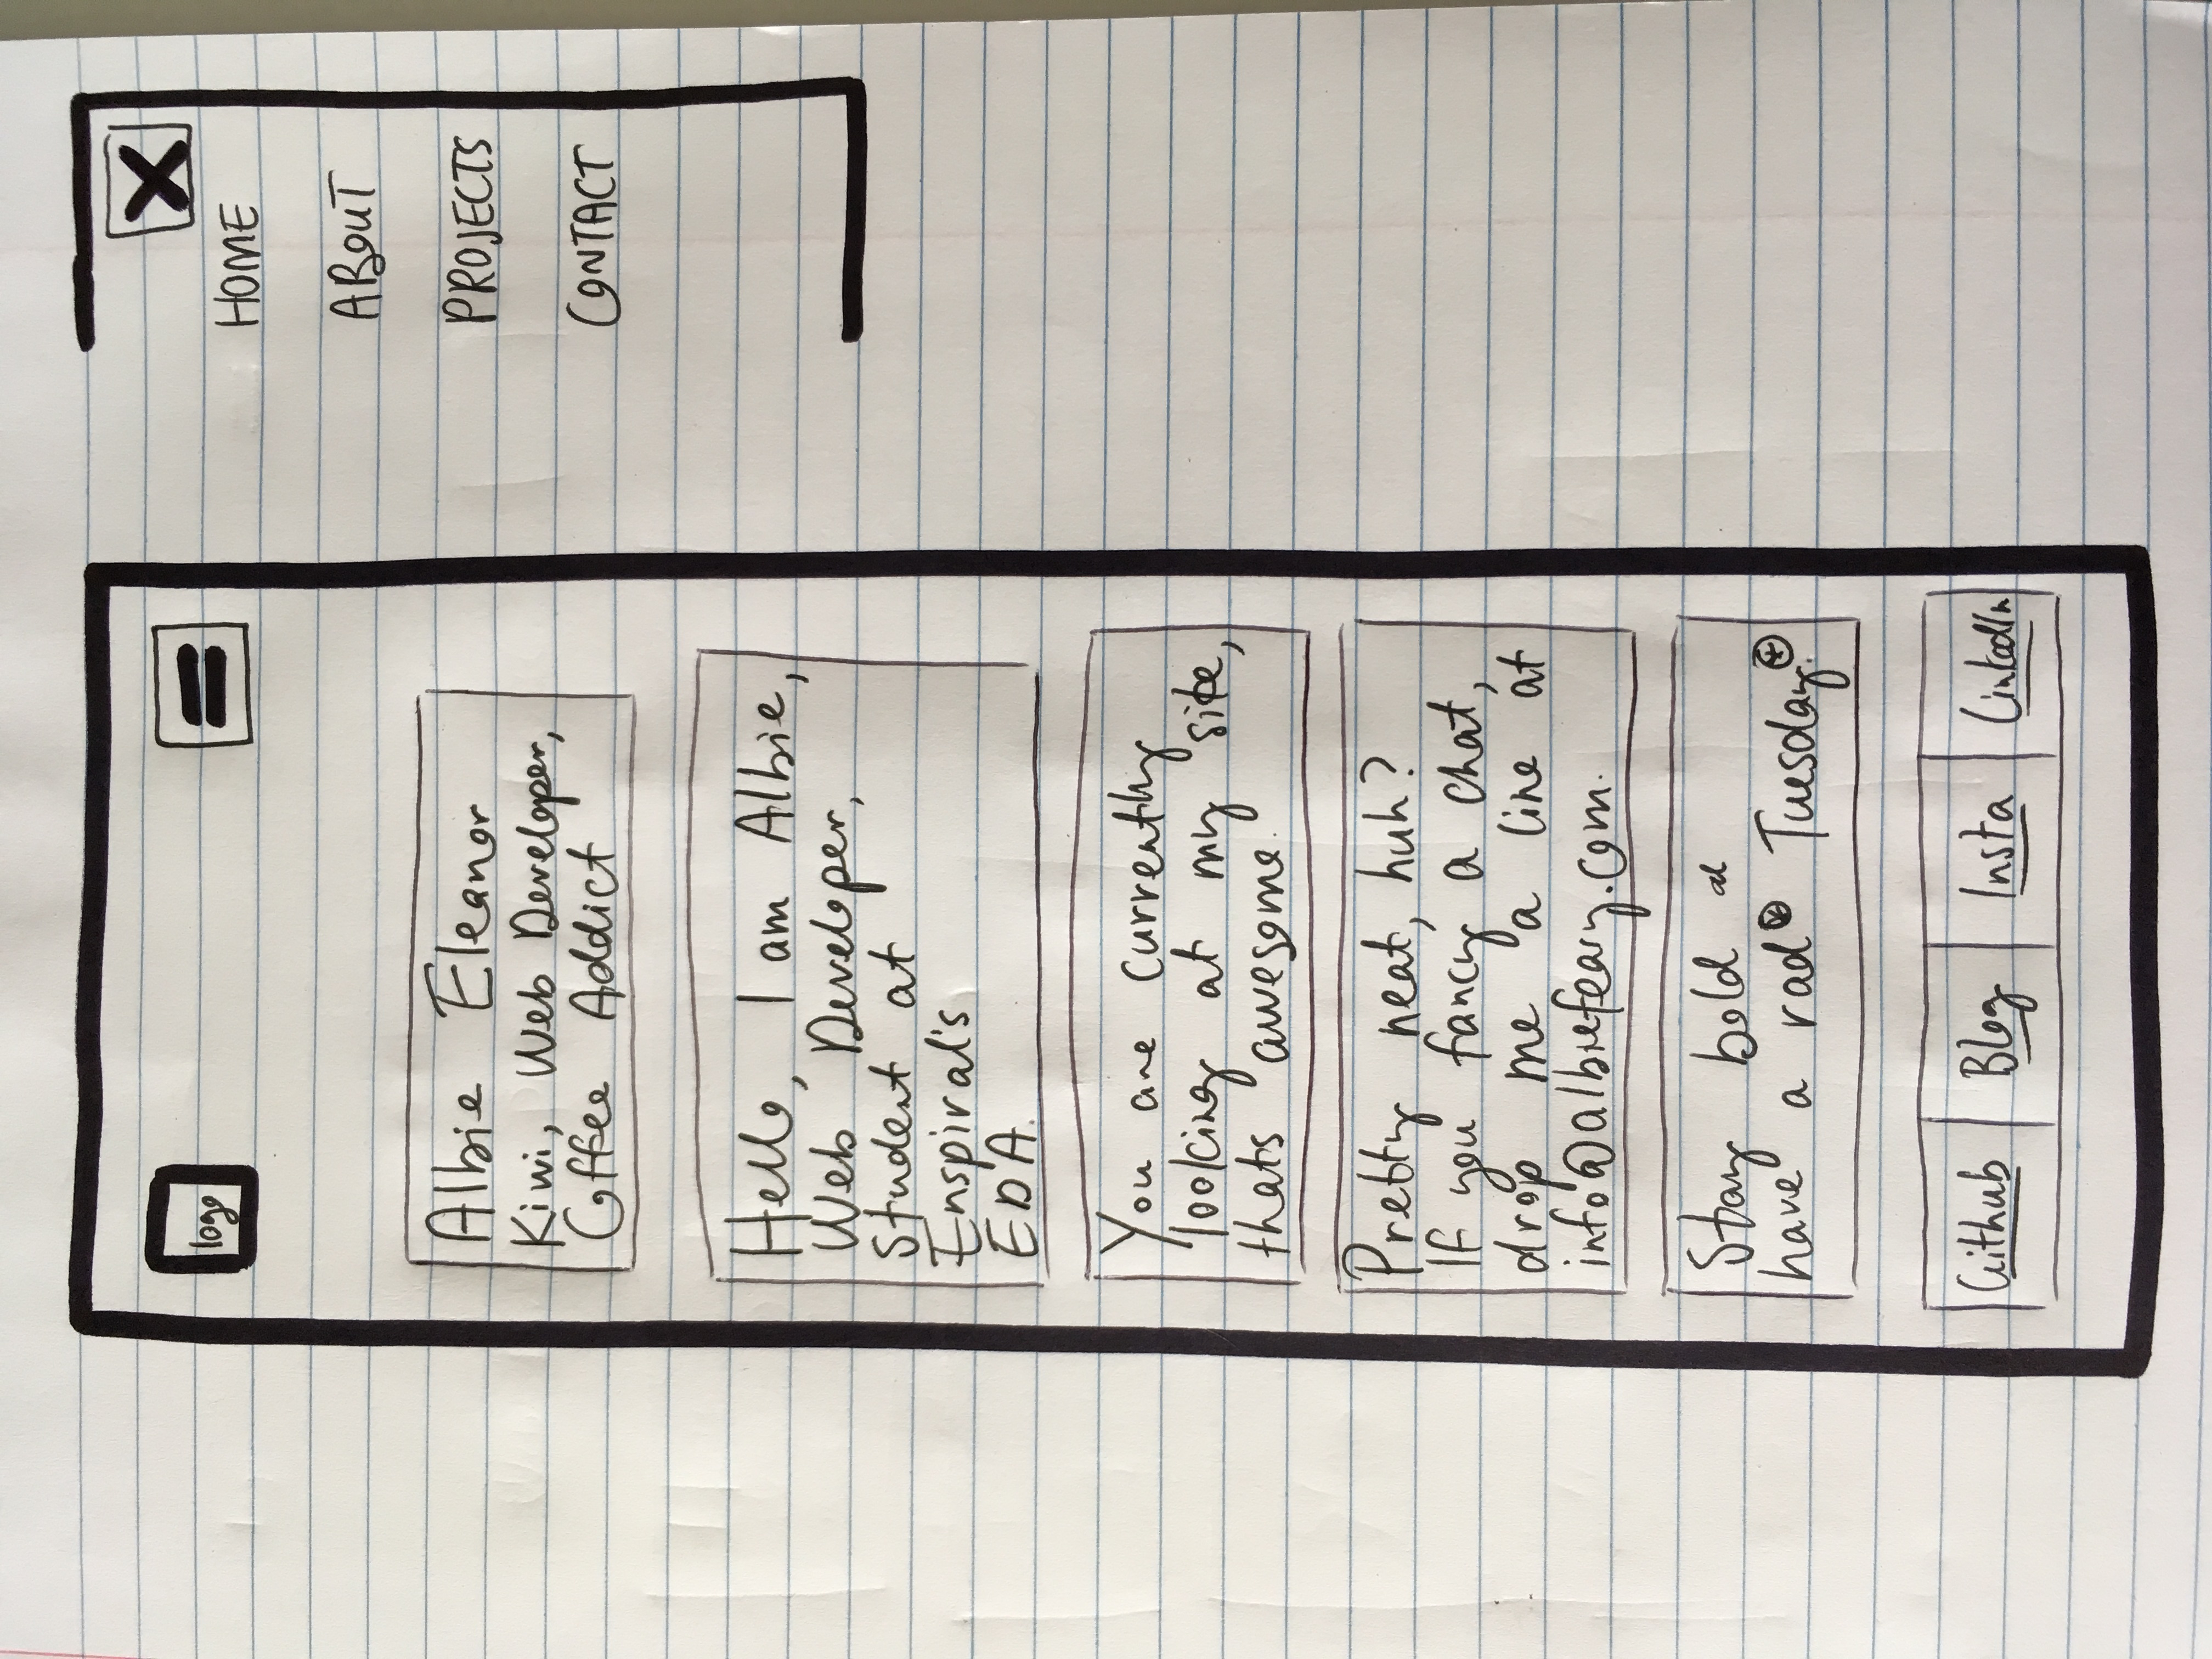 logo
Albie Eleanor
Kiwi, Web Developer,
Coffee Addict
Hello, I am Albie,
Web Developer,
Student at
Enspiral's
EDA.
You are currently
looking at my site,
thats awesome.
Pretty neat, huh?
If you fancy a chat,
drop me a line at
info@albiefeary.com.
Stay bold
have a rad* Tuesday.*
Github Blog Insta LinkedIn
HOME
ABOUT
PROJECTS
CONTACT